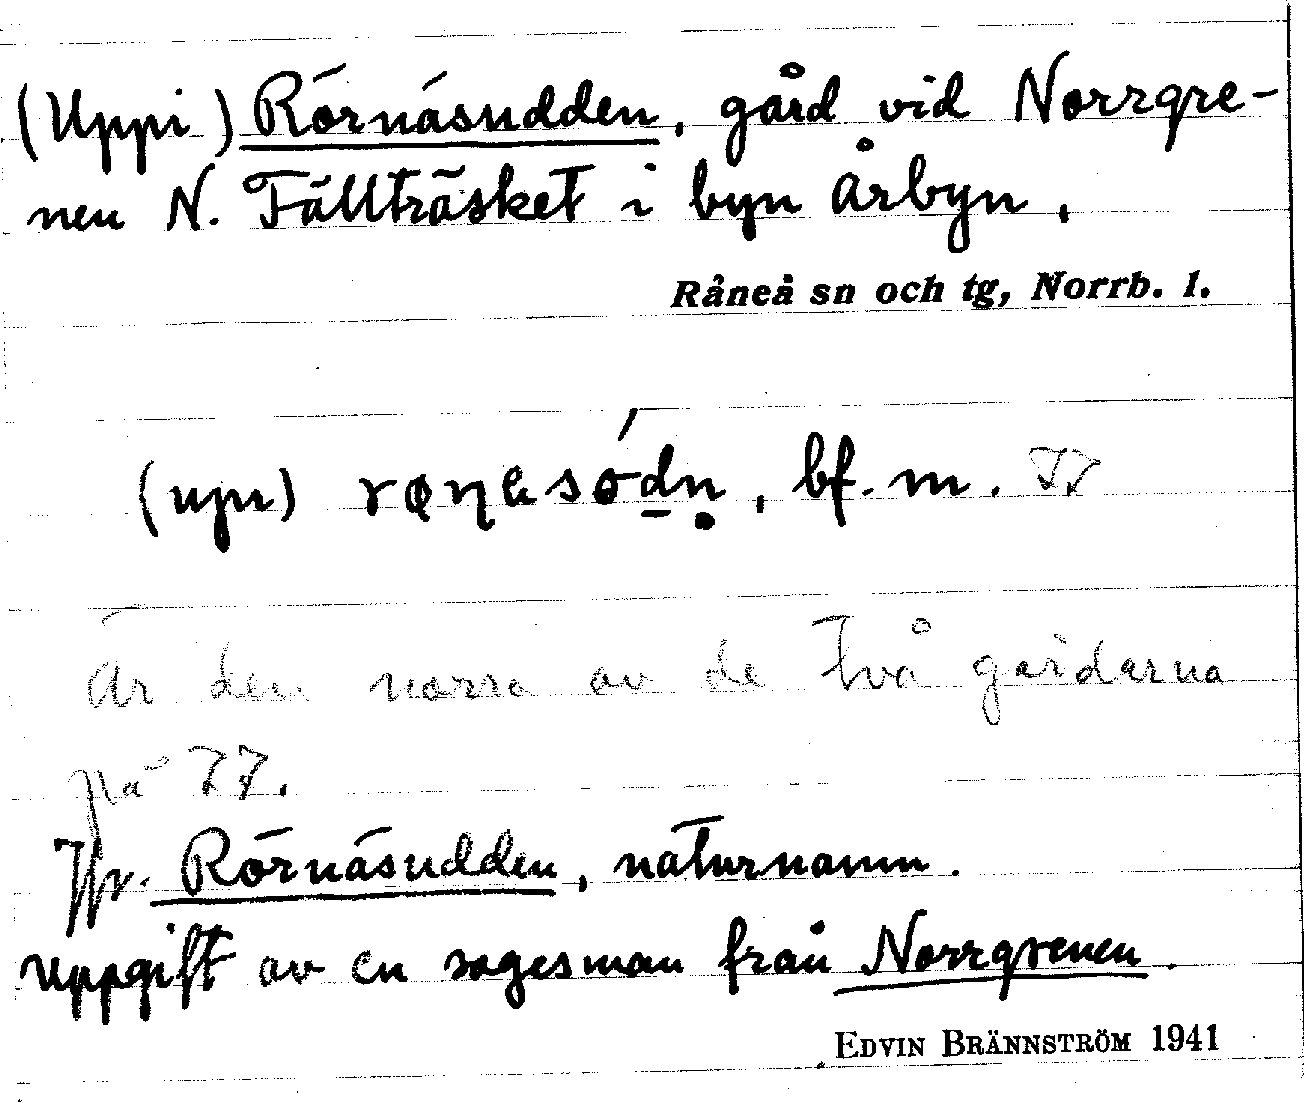 (Uppi) Rörnäsudden, gård vid Norrgre-
nen N. Fällträsket i byn Årbyn,
Råneå sn och tg, Norrb. l.
(upı) bf. m. 77
Är den norra av de två gårdarna
på 77.
Jfr. Rörnäsudden, naturnamn.
Uppgift av en sagesman från Norrgrenen.
EDVIN BRÄNNSTRÖM 1941